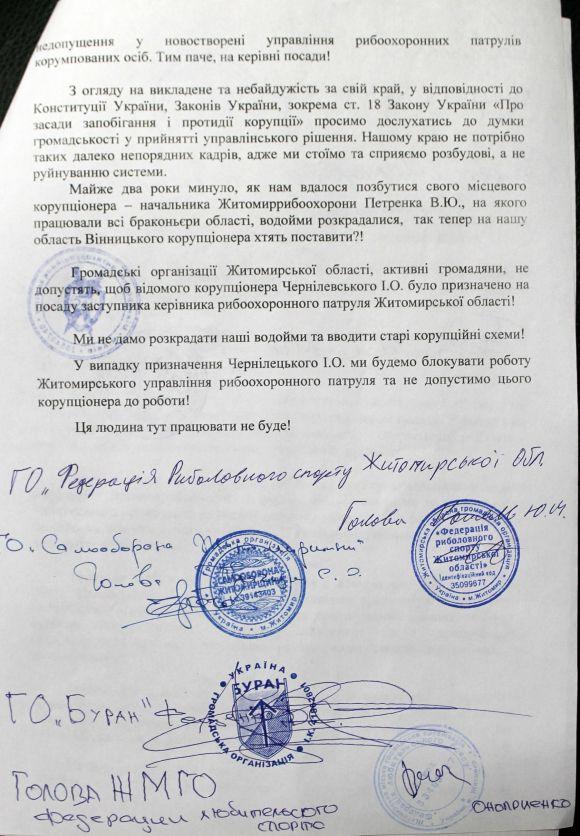 недопущення у новостворені управління рибоохоронних патрулів
корумпованих осіб. Тим паче, на керівні посади!
З огляду на викладене та небайдужість за свій край, у відповідності до
Конституції України, Законів України, зокрема ст. 18 Закону України «Про
засади запобігання і протидії корупції» просимо дослухатись до думки
громадськості у прийнятті управлінського рішення. Нашому краю не потрібно
таких далеко непорядних кадрів, адже ми стоїмо та сприяємо розбудові, а не
руйнуванню системи.
Майже два роки минуло, як нам вдалося позбутися свого місцевого
корупціонера – начальника Житомиррибоохорони Петренка В.Ю., на якого
працювали всі браконьєри області, водойми розкрадалися, так тепер на нашу
область Вінницького корупціонера хтять поставити?!
Громадські організації Житомирської області, активні громадяни, не
допустять, щоб відомого корупціонера Чернілевського І.О. було призначено на
посаду заступника керівника рибоохоронного патруля Житомирської області!
Ми не дамо розкрадати наші водойми та вводити старі корупційні схеми!
У випадку призначення Чернілецького І.О. ми будемо блокувати роботу
Житомирського управління рибоохоронного патруля та не допустимо цього
корупціонера до роботи!
Ця людина тут працювати не буде!
ГО „Федерація Риболовного спорту Житомирської Обл.
Голова Ю.М.
"О. Самооборона
Голова С.О.
Громадська організація
САМООБОРОНА
ЖИТОМИРЩИНИ
39143403
Україна * м. Житомир
Житомирська обласна громадська організація
«Федерація
риболовного
спорту
Житомирської
області»
Ідентифікаційний код
35099877
Україна * м. Житомир
ГО „Буран"
УКРАЇНА
БУРАН
ГРОМАДСЬКА ОРГАНІЗАЦІЯ
ГОЛОВА ЖМГО
федерации любительского
спорта
ОНОПРИЕНКО